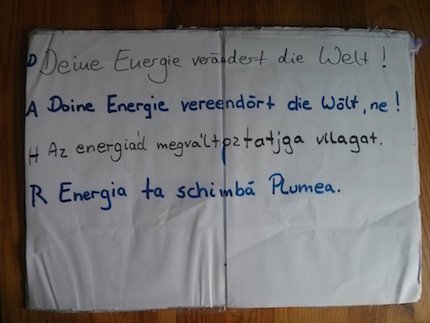 D Deine Energie verändert die Welt!
A Doine Energie vereendört die Wölt, ne!
H Az energiád megváltoztatjga vilagat.
R Energia ta schimbă Plumea.